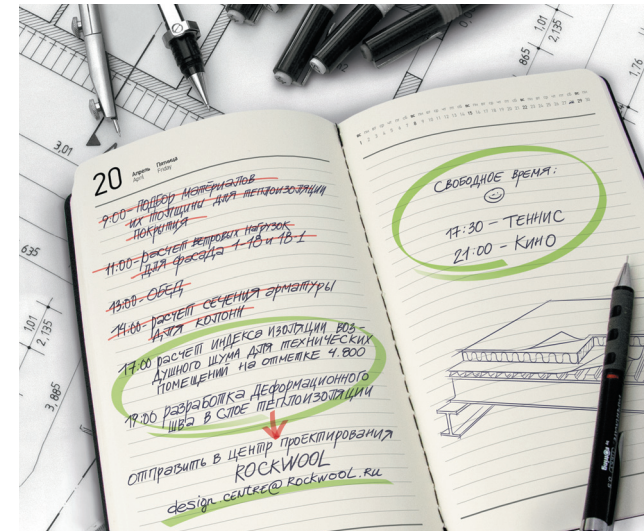 20
Апрель Пятница
April Friday
9:00 - подбор материалов
их толщины для теплоизоляции
покрытия
11:00 - расчет ветровых нагрузок
для фасада 1-18 и 18-1
13:00 - обед
14:00 - расчет сечения арматуры
для колонн
17.00 расчет индекса изоляции воз-
душного шума для технических
помещений на отметке 4.800
19:00 разработка деформационного
шва в слое теплоизоляции
отправить в центр проектирования
ROCKWOOL
design.centre@rockwool.ru
Свободное время:
17:30 - Теннис
21:00 - Кино
3,01
635
1,01
2,135
3,885
865
1,01
2,135
1,76
rotring